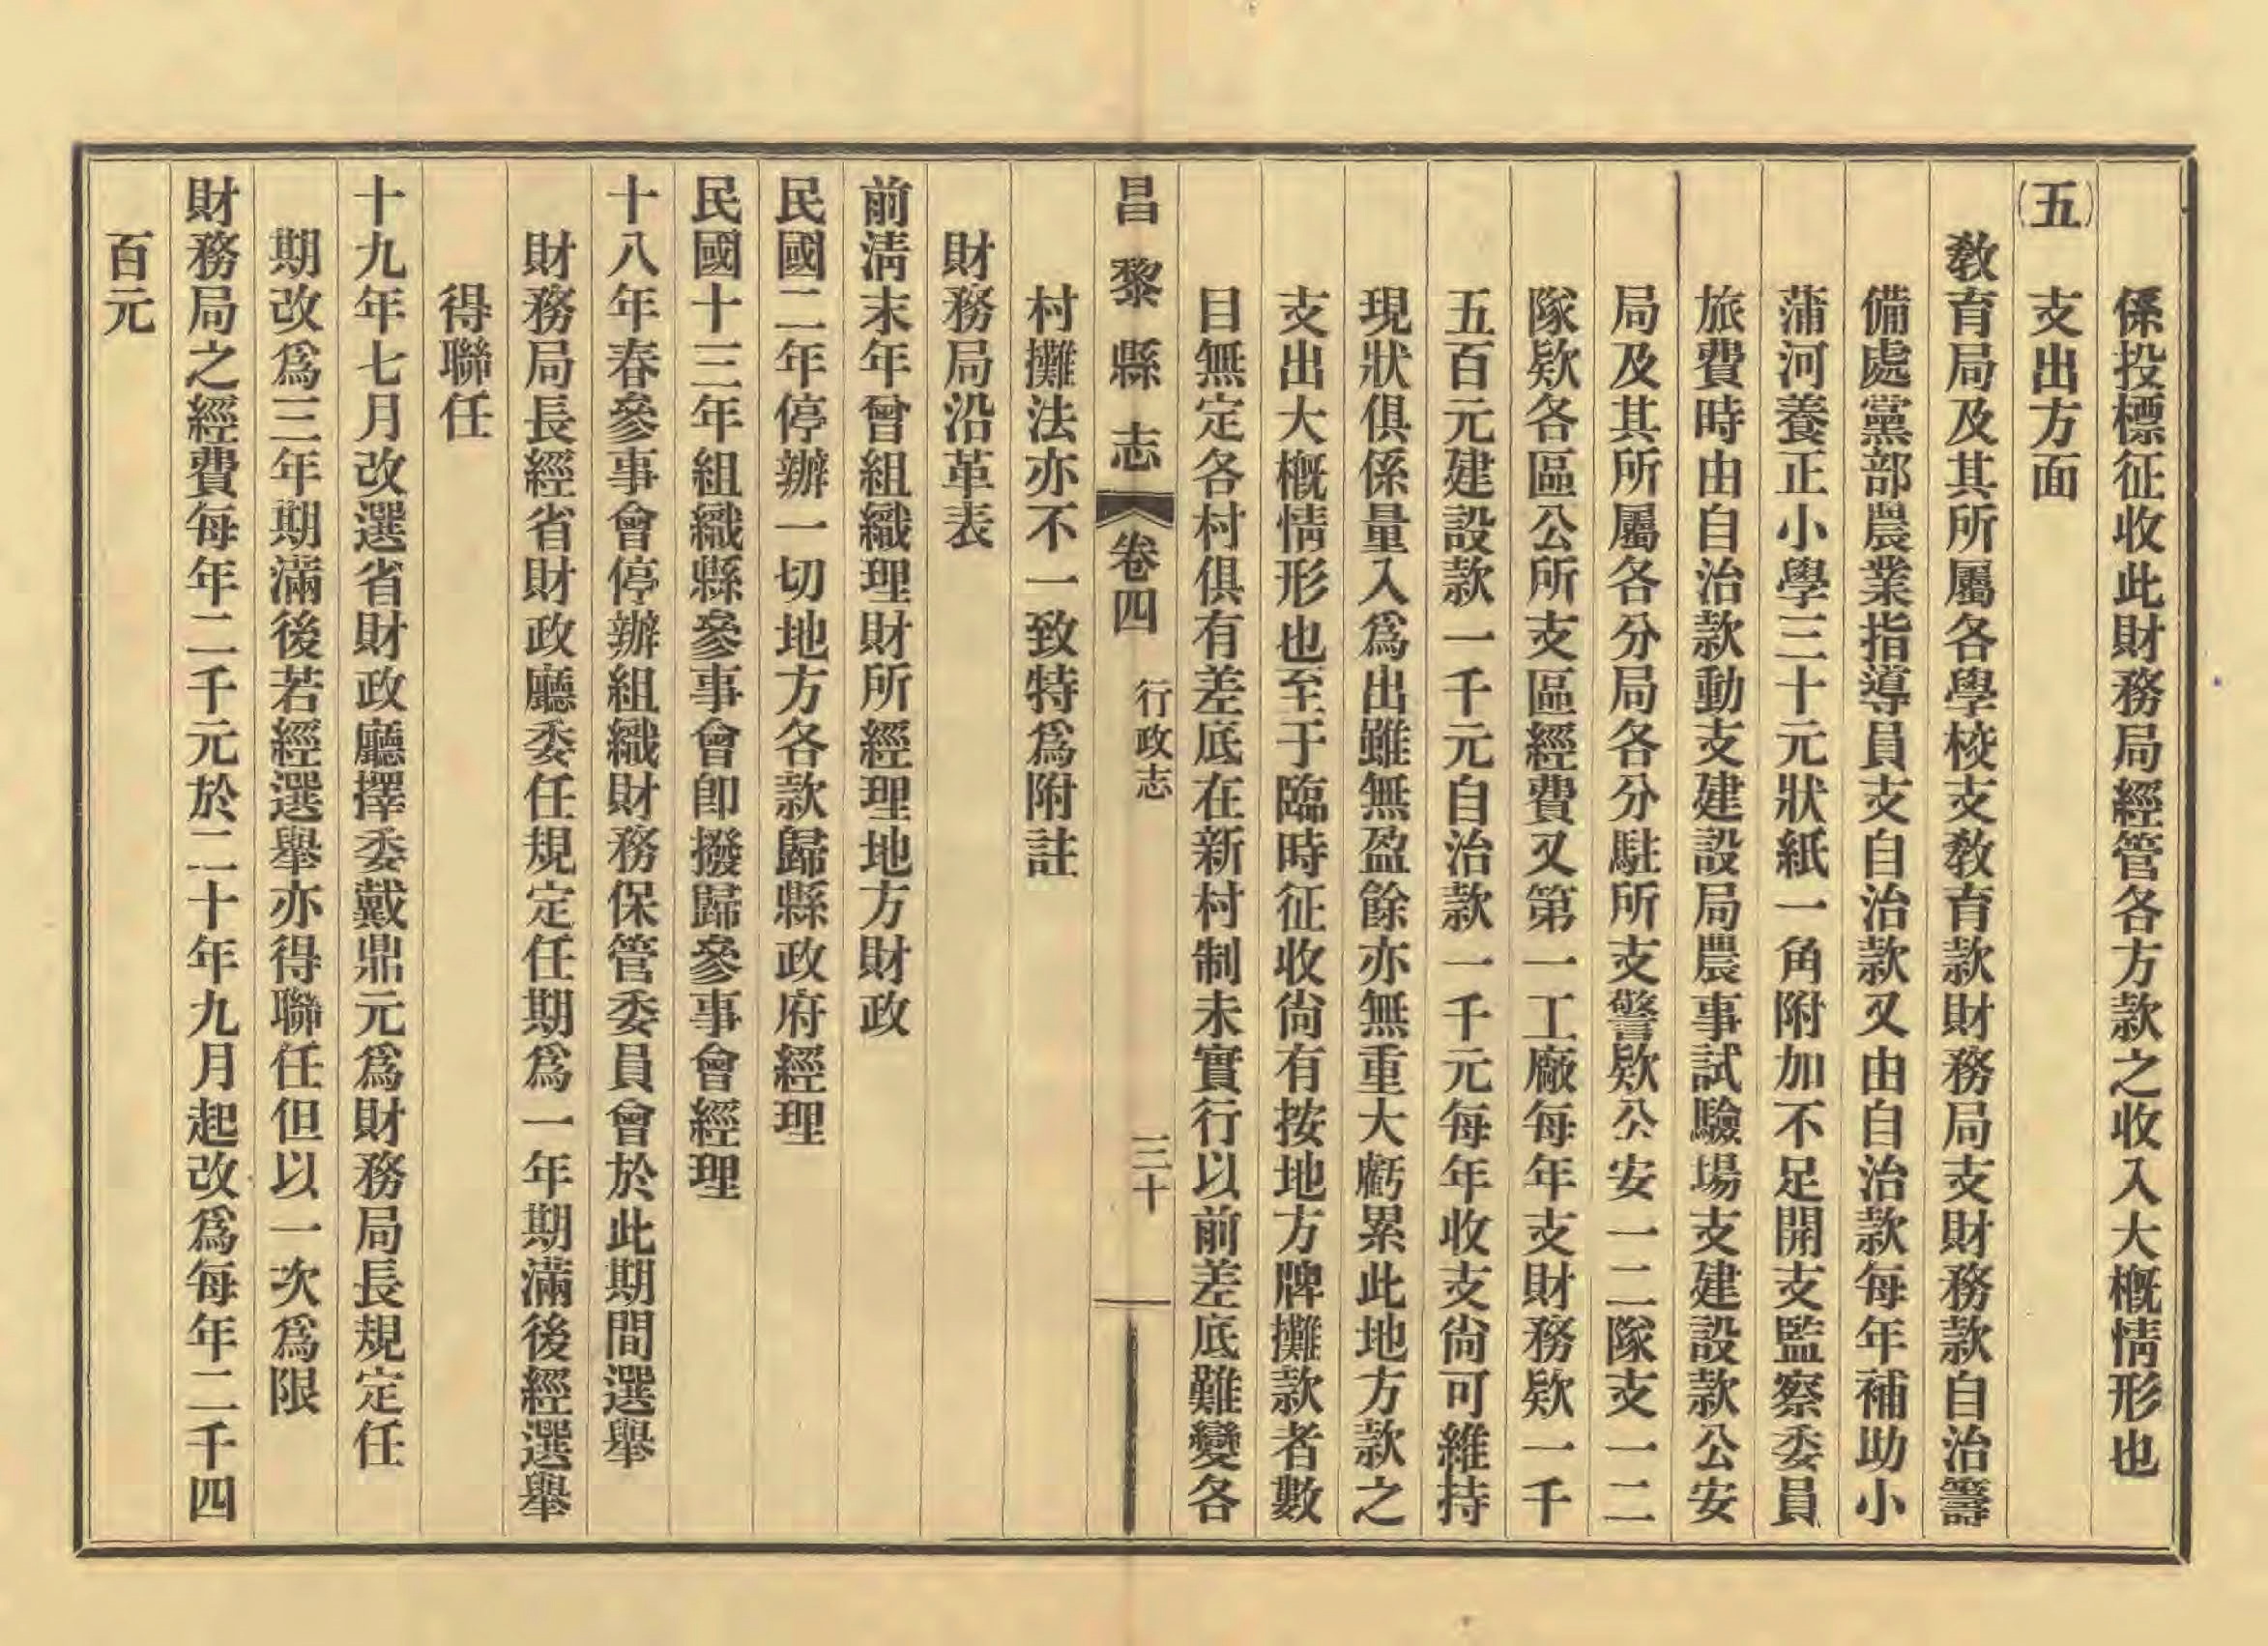 係投標征收此財務局經管各方款之收入大槪情形也
(五)　支出方面
敎育局及其所屬各學校支敎育款財務局支財務款自治籌
備處黨部農業指導員支自治款又由自治款每年補助小
蒲河養正小學三十元狀紙一角附加不足開支監察委員
旅費時由自治款動支建設局農事試驗場支建設款公安
局及其所屬各分局各分駐所支警欵公安一二隊支一二
隊欵各區公所支區經費又第一工廠每年支財務欵一千
五百元建設款一千元自治款一千元每年收支尙可維持
現狀俱係量入爲出雖無盈餘亦無重大虧累此地方款之
支出大槪情形也至于臨時征收尙有按地方牌攤款者數
目無定各村俱有差底在新村制未實行以前差底難變各
昌黎縣志　卷四　行政志　三十
村攤法亦不一致特爲附註
財務局沿革表
前淸末年曾組織理財所經理地方財政
民國二年停辦一切地方各款歸縣政府經理
民國十三年組織縣參事會卽撥歸參事會經理
十八年春參事會停辦組織財務保管委員會於此期間選舉
財務局長經省財政廳委任規定任期爲一年期滿後經選舉
得聯任
十九年七月改選省財政廳擇委戴鼎元爲財務局長規定任
期改爲三年期滿後若經選舉亦得聯任但以一次爲限
財務局之經費每年二千元於二十年九月起改爲每年二千四
百元